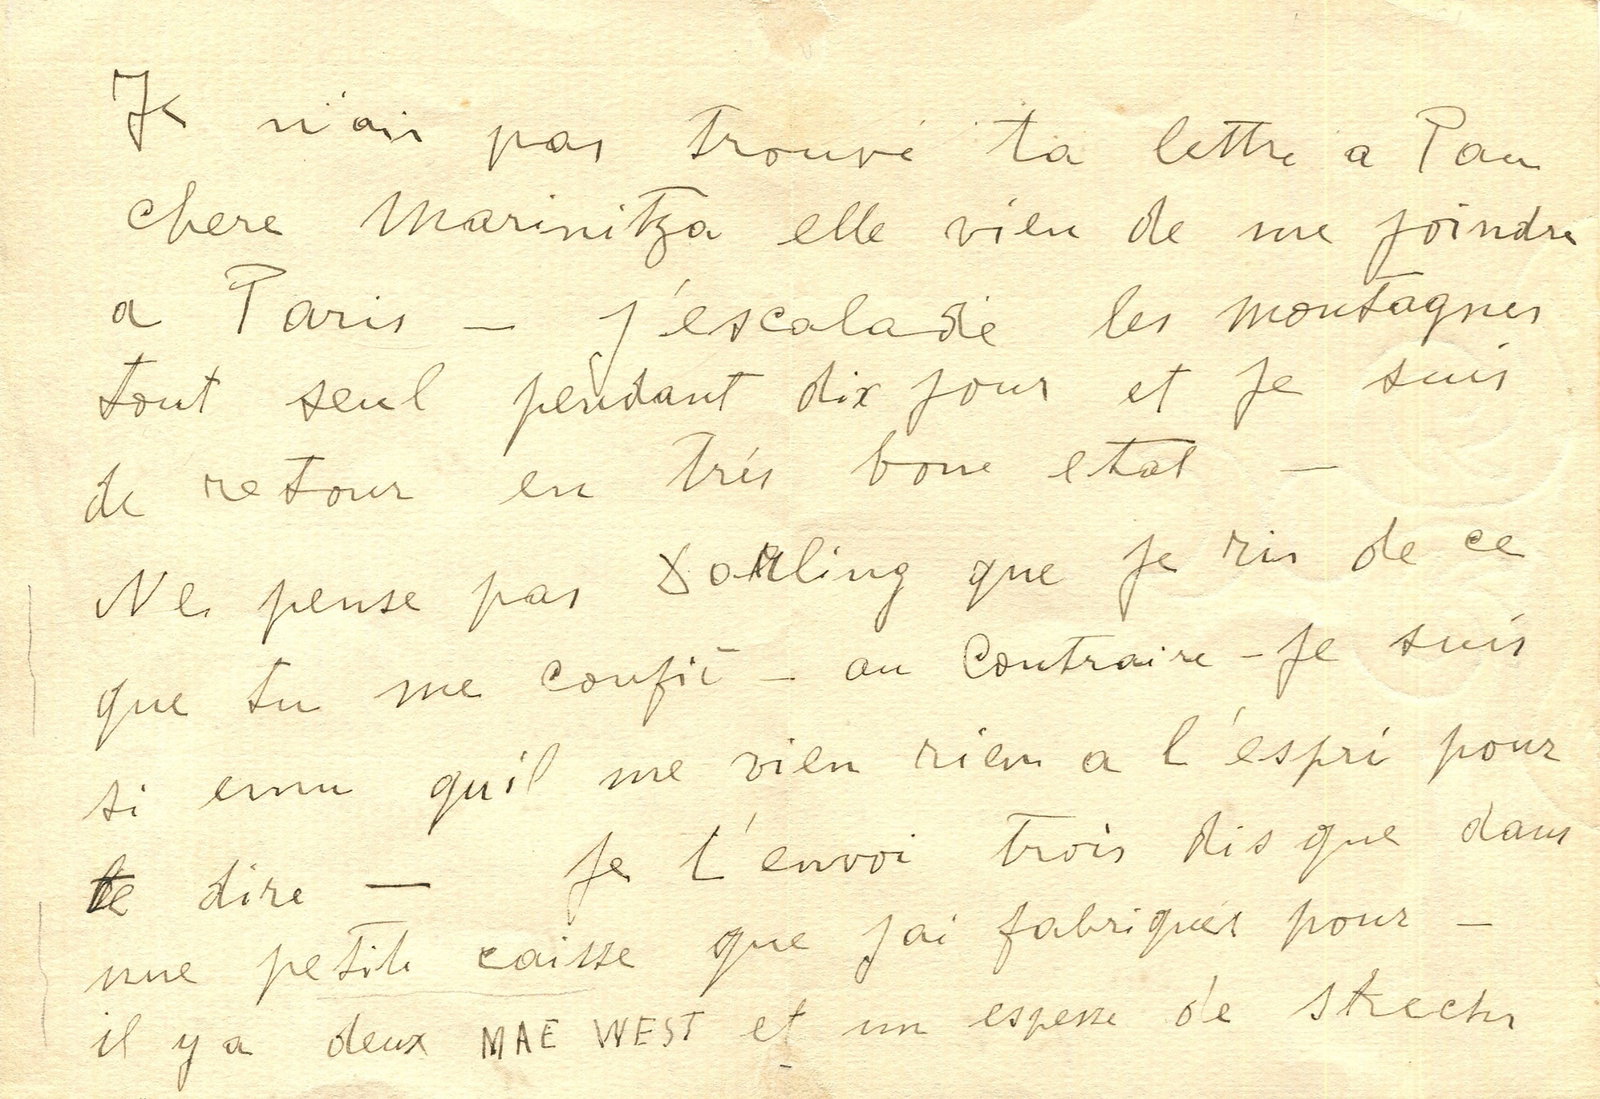 Je n'ais pas trouvé ta lettre a Pau
chere Marinitza elle vien de me joindre
a Paris — j'escaladé les montagnes
tout seul pendant dix jour et je suis
de retour en trés bone etat —
Ne pense pas Darling que je ris de ce
que tu me confié — au Contraire — je suis
si emu qu'il me vien rien a l'espri pour
te dire — Je t'envoi trois disque dans
une petite caisse que j'ai fabriqués pour —
il y a deux MAE WEST et un espesse de